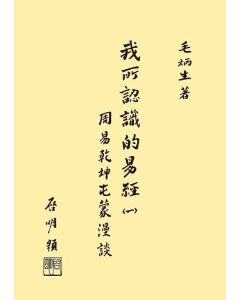 毛炳生著
我所認識的易經(一)
周易乾坤屯蒙漫談
啓明題